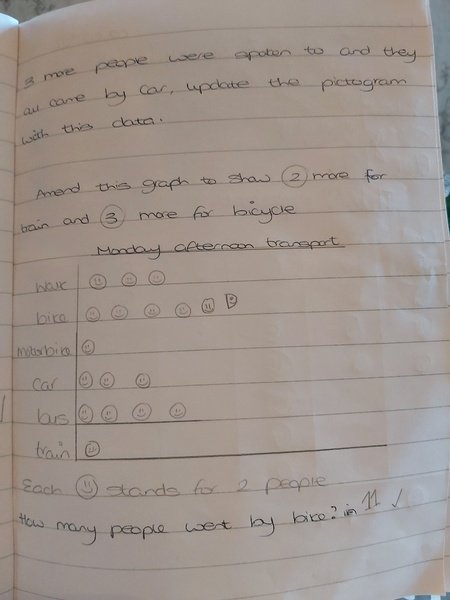 3 more people were spoken to and they
all came by car, update the pictogram
with this data.
Amend this graph to show 2 more for
train and 3 more for bicycle
Monday afternoon transport
walk
bike
motorbike
car
bus
train
Each stands for 2 people
How many people went by bike? in 11 ✓